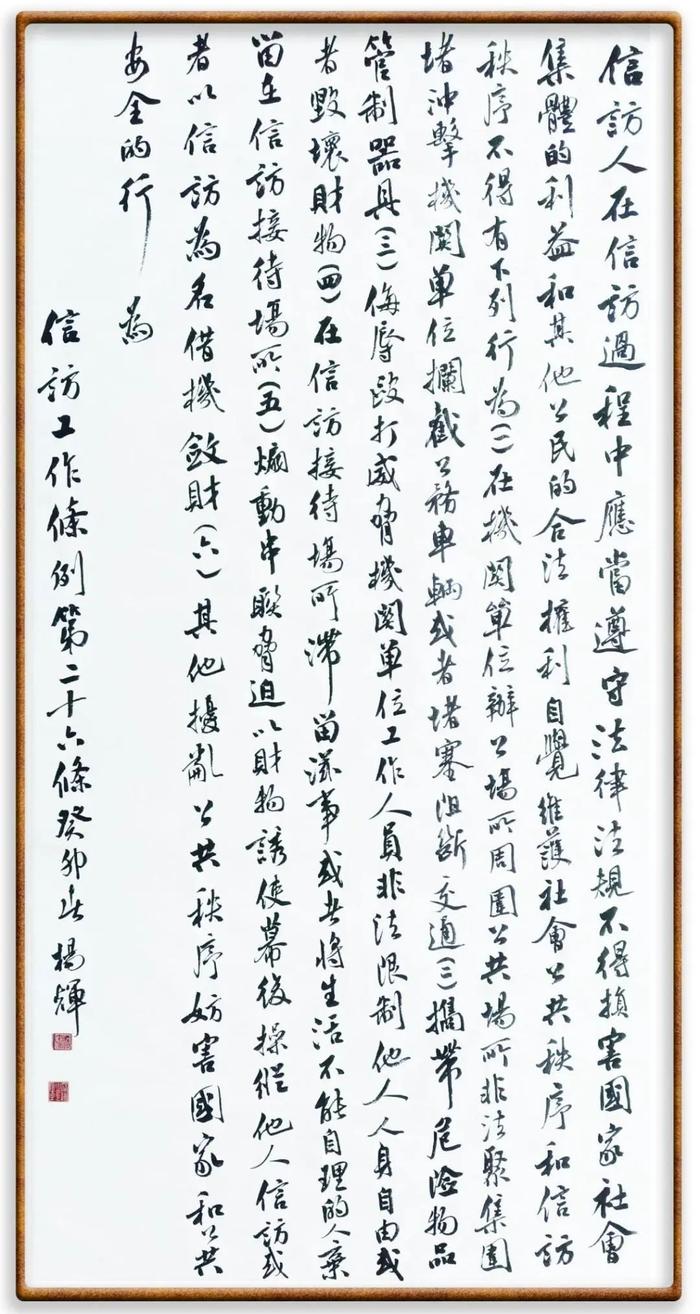 信訪人在信訪過程中應當遵守法律法規不得損害國家社會
集體的利益和其他公民的合法權利自覺維護社會公共秩序和信訪
秩序不得有下列行為(一)在機關單位辦公場所周圍公共場所非法聚集圍
堵沖擊機關單位攔截公務車輛或者堵塞阻斷交通(二)攜帶危險物品
管制器具(三)侮辱毆打威脅機關單位工作人員非法限制他人人身自由或
者毀壞財物(四)在信訪接待場所滯留滋事或者將生活不能自理的人棄
留在信訪接待場所(五)煽動串聯脅迫以財物誘使幕後操縱他人信訪或
者以信訪為名借機斂財(六)其他擾亂公共秩序妨害國家和公共
安全的行為
信訪工作條例第二十六條癸卯春楊輝